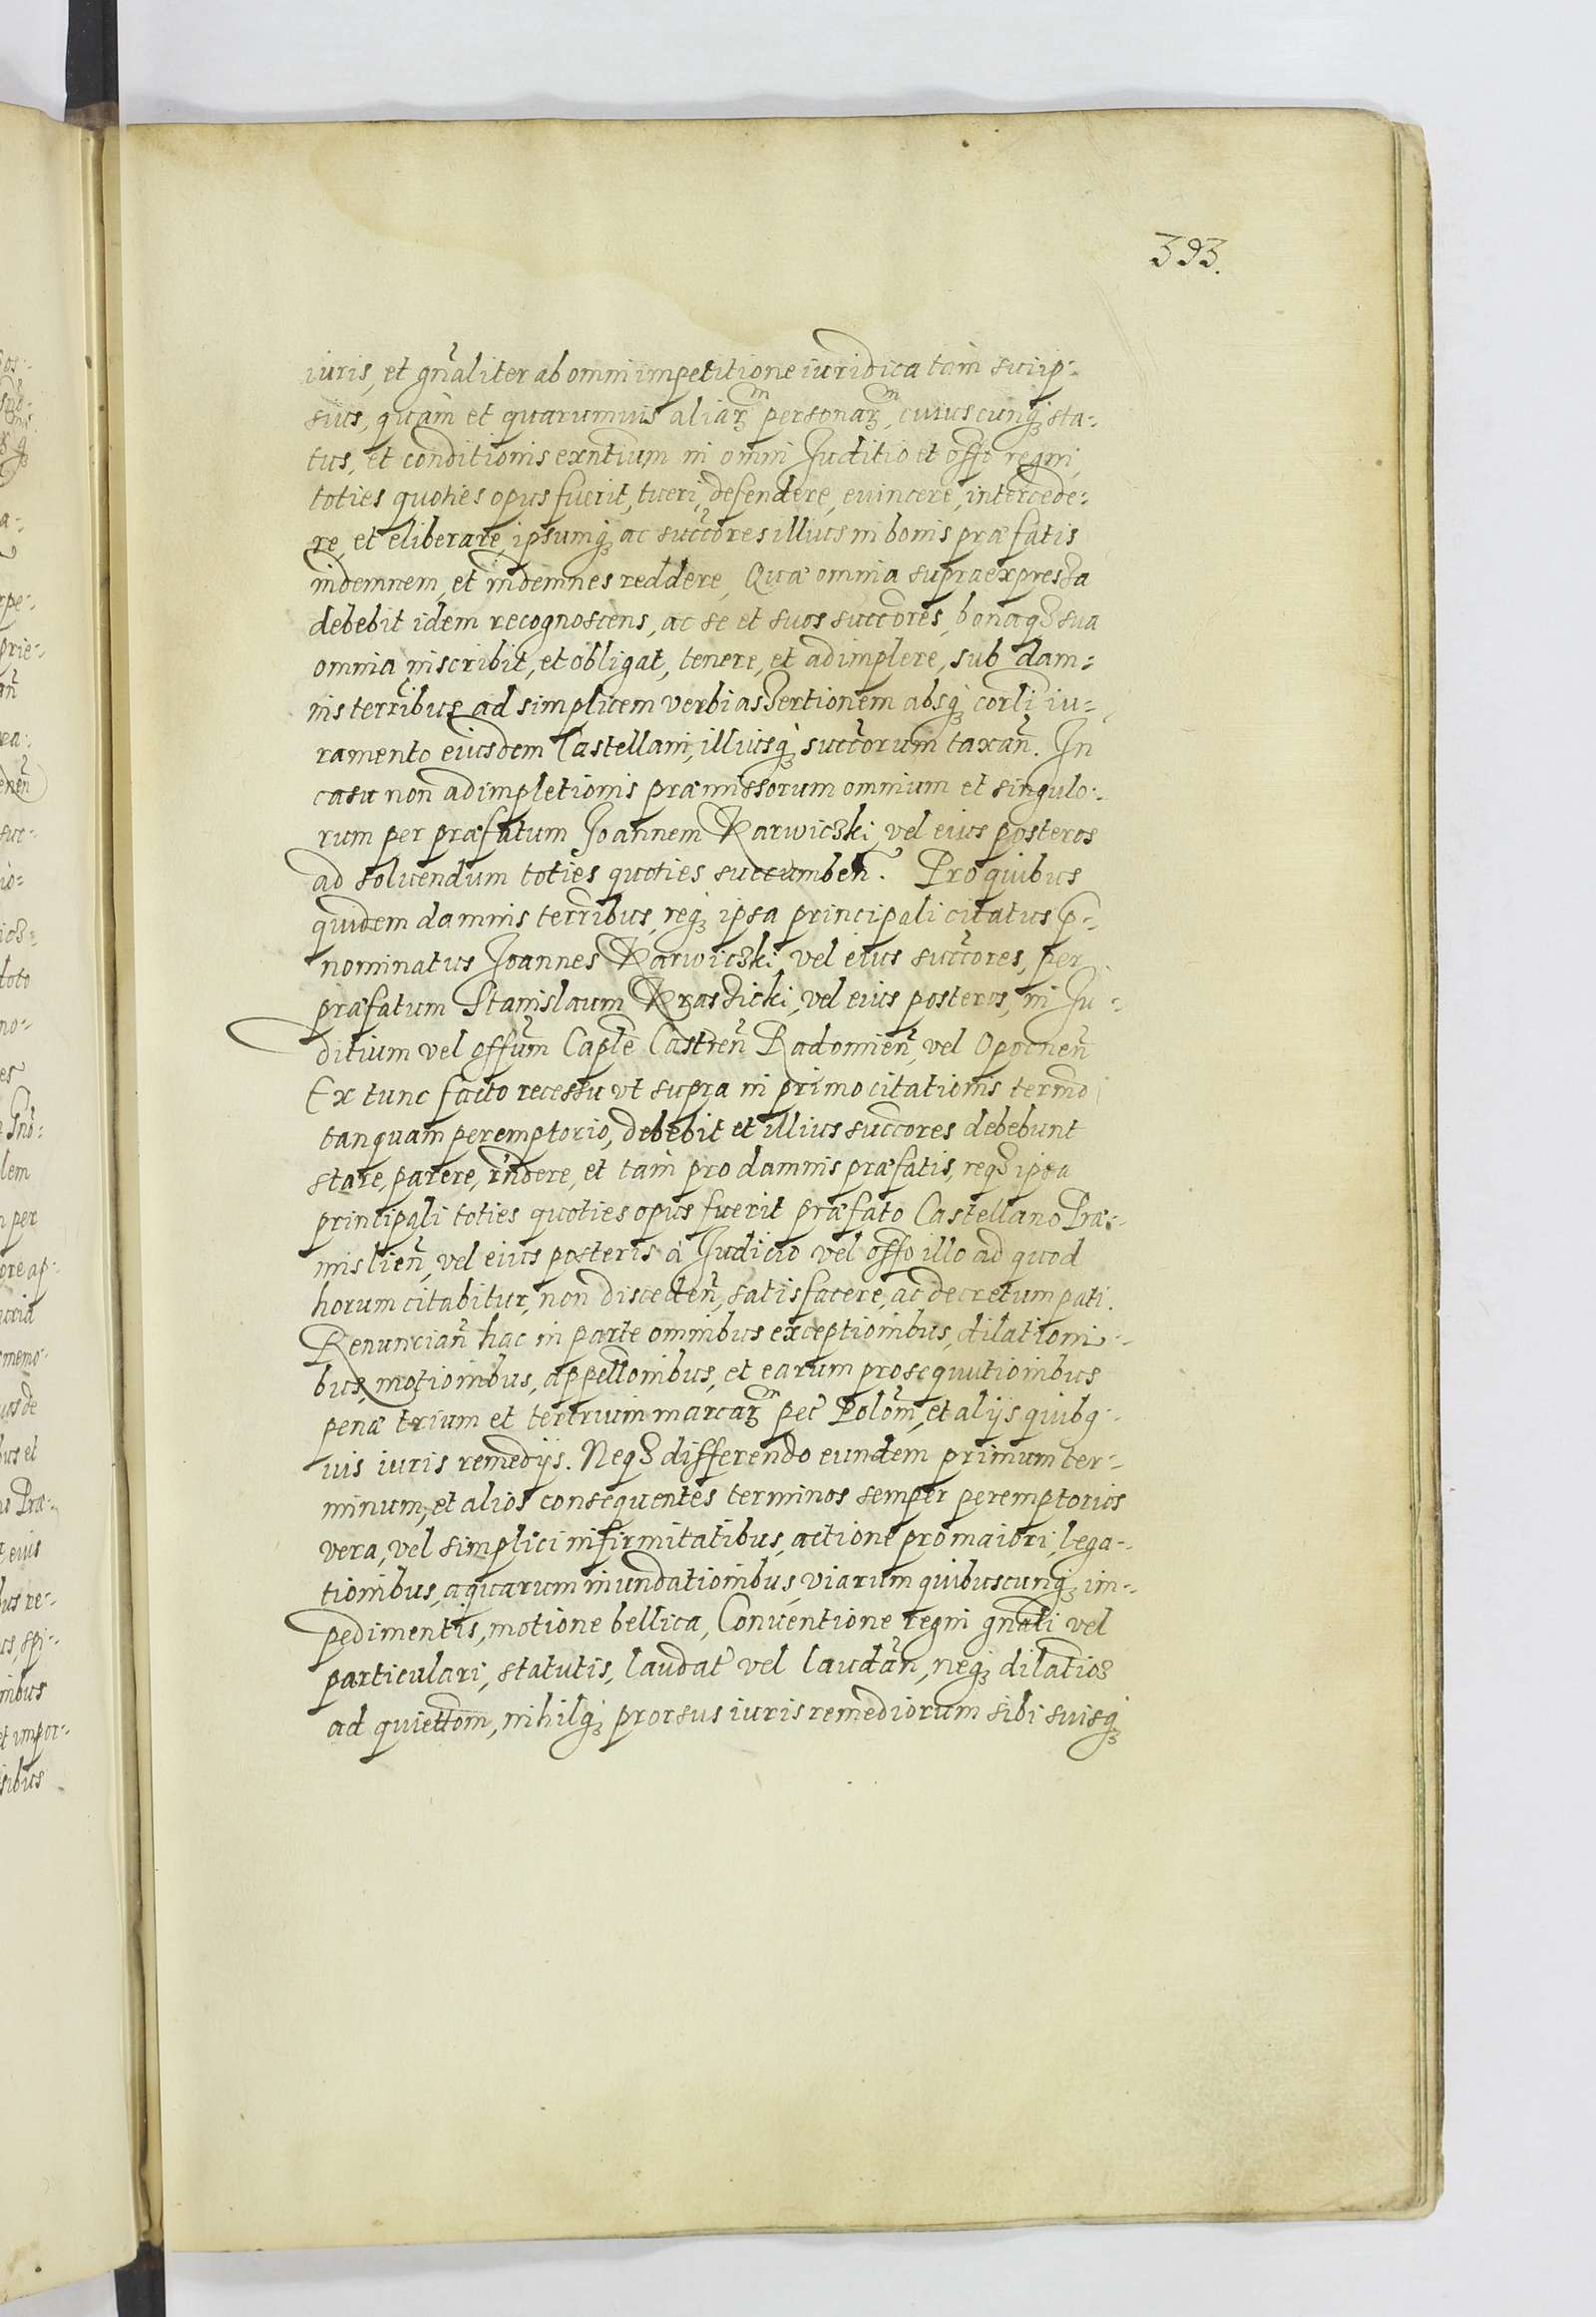 393.
iuris, et gñaliter ab omni impetitione iuridica tam sui ip-
sius, quàm et quarumuis aliaꝝ personaꝝ, cuiuscunqꝫ sta-
tus, et conditionis exntium in omni Juditio et offo regni,
toties quoties opus fuerit, tueri, defendere, euincere, intercede-
re, et eliberare, ipsumqꝫ ac succores illius in bonis præfatis
indemnem, et indemnes reddere, Quæ omnia supraexpressa
debebit idem recognoscens, ac se et suos succores, bonaqꝫ sua
omnia inscribit, et obligat, tenere, et adimplere, sub dam-
nis terribus ad simplicem verbi assertionem absqꝫ corli iu-
ramento eiusdem Castellani, illiusqꝫ succorum taxañ. In
casu non adimpletionis præmissorum omnium et singulo-
rum per præfatum Joannem Karwiczki, vel eius posteros
ad soluendum toties quoties succumbeñ. Pro quibus
quidem damnis terribus, reqꝫ ipsa principali citatus p-
nominatus Joannes Karwiczki, vel eius succores, per
præfatum Stanislaum Krasicki, vel eius posteros, in Ju-
ditium vel offum Caple Castreñ Radomieñ, vel Opocneñ
Ex tunc facto recessu vt supra in primo citationis termo
tanquam peremptorio, debebit et illius succores debebunt
stare, parere, rñdere, et tam pro damnis præfatis, reqꝫ ipsa
principali toties quoties opus fuerit præfato Castellano Præ-
mislieñ, vel eius posteris à Judicio vel offo illo ad quod
horum citabitur, non discedeñ, satisfacere, ac decretum pati.
Renunciañ hac in parte omnibus exceptionibus, dilationi-
bus, motionibus, appellonibus, et earum prosequutionibus
penæ trium et terrium marcaꝝ pec Polom, et alijs quibq-
uis iuris remedijs. Neqꝫ differendo eundem primum ter-
minum, et alios consequentes terminos semper peremptorios
vera, vel simplici infirmitatibus, actione pro maiori, lega-
tionibus, aquarum inundationibus, viarum quibuscunqꝫ im-
pedimentis, motione bellica, Conuentione regni gnali vel
particulari, statutis, laudat vel laudañ, neqꝫ dilatios
ad quiettom, nihilqꝫ prorsus iuris remediorum sibi suisqꝫ